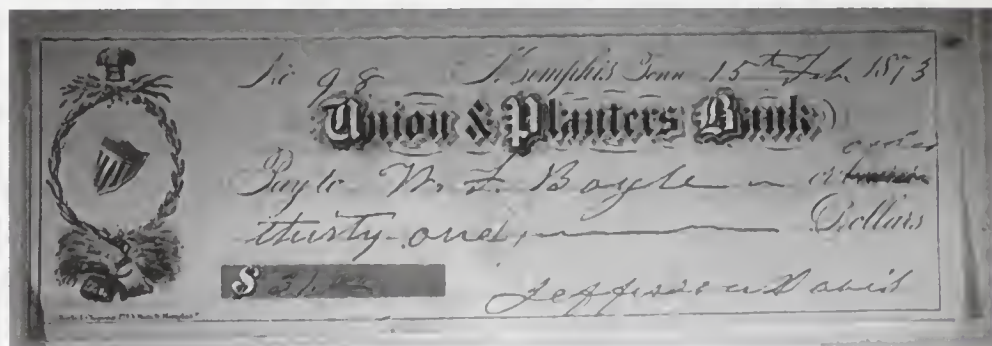 No 98 Memphis Tenn 15th Feb. 1873
Union & Planters Bank
order
Pay to W. F. Boyle or bearer
thirty-one, Dollars
$ 31.00
Jefferson Davis